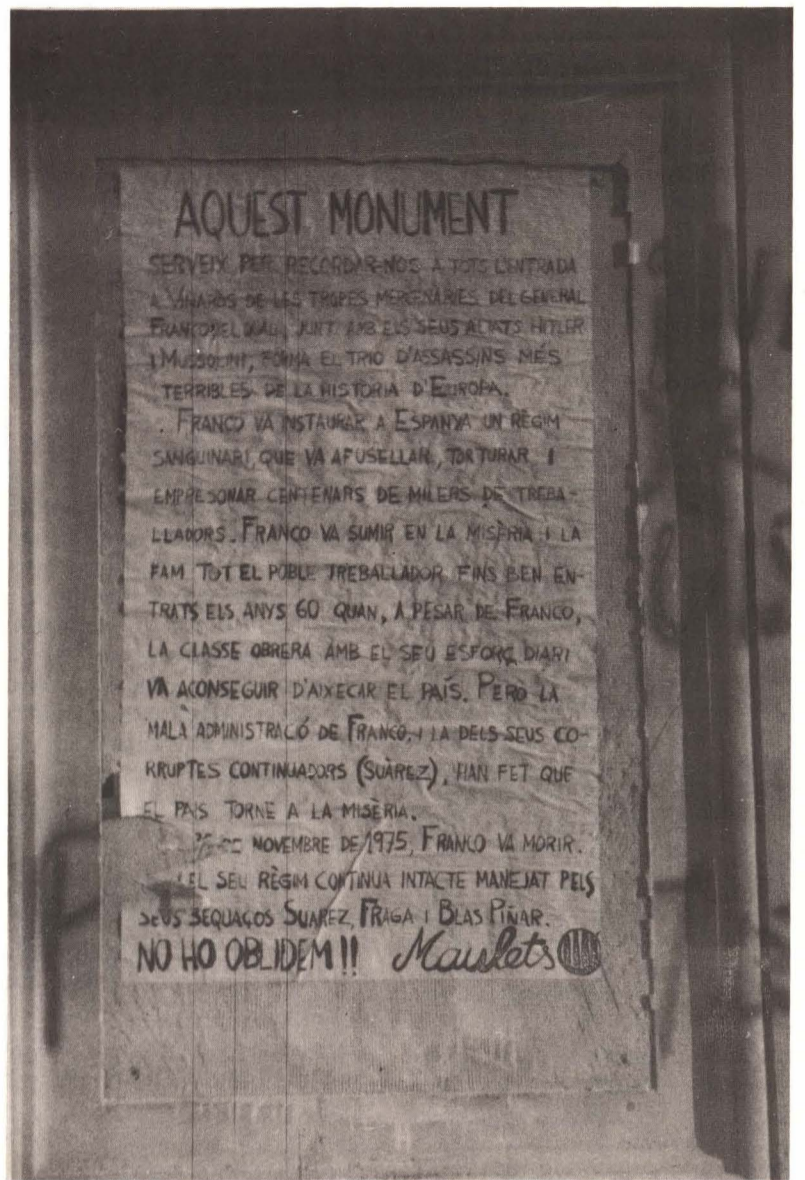 AQUEST MONUMENT
SERVEIX PER RECORDAR-NOS A TOTS L'ENTRADA
A VINAROS DE LES TROPES MERCENÀRIES DEL GENERAL
FRANCO, EL QUAL, JUNT AMB ELS SEUS ALIATS HITLER
I MUSSOLINI, FORMA EL TRIO D'ASSASSINS MÉS
TERRIBLES DE LA HISTORIA D'EUROPA.
. FRANCO VA INSTAURAR A ESPANYA UN RÈGIM
SANGUINARI, QUE VA AFUSELLAR, TORTURAR I
EMPRESONAR CENTENARS DE MILERS DE TREBA-
LLADORS. FRANCO VA SUMIR EN LA MISÈRIA I LA
FAM TOT EL POBLE TREBALLADOR FINS BEN EN-
TRATS ELS ANYS 60 QUAN, A PESAR DE FRANCO,
LA CLASSE OBRERA AMB EL SEU ESFORÇ DIARI
VA ACONSEGUIR D'AIXECAR EL PAÍS. PERO LA
MALA ADMINISTRACÓ DE FRANCO, I LA DELS SEUS CO-
RRUPTES CONTINUADORS (SUÀREZ), HAN FET QUE
EL PAIS TORNE A LA MISÈRIA.
DE NOVEMBRE DE 1975, FRANCO VA MORIR.
EL SEU RÈGIM CONTINUA INTACTE MANEJAT PELS
SEUS SEQUAÇOS SUAREZ, FRAGA I BLAS PIÑAR.
NO HO OBLIDEM!! Maulets